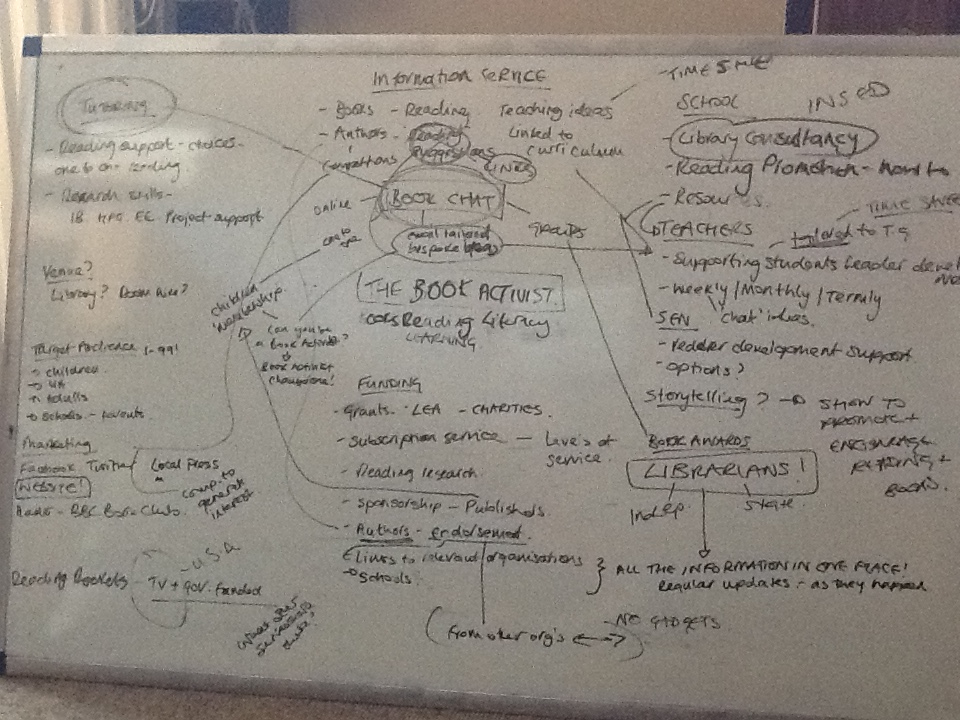 Tutoring
- Reading support - choices -
one to one reading
- Research skills -
IB EE Project support
Venue?
Library?
Target Audience 1-99!
→ children
→ YA
→ Adults
→ Schools - parents
Marketing
Facebook Twitter
WEBSITE!
Radio - BBC Book Club.
Local Press
comp. to
generate
interest
Reading Rockets
- U.S.A
TV + Gov. funded
Information SERVICE
- Books - Reading
- Authors - Reading
suggestions
LINKS
Teaching ideas
Linked to
curriculum
BOOK CHAT
online
one to
one
tailored
bespoke
GROUPS
children
membership.
Can you be
a Book Activist?
Book Activist
Champions!
THE BOOK ACTIVIST
Reading Literacy
LEARNING
FUNDING
- Grants - LEA - CHARITIES.
- Subscription service - Levels of
service
- Reading research.
- Sponsorship - Publishers.
- Authors - endorsement.
Links to relevant organisations
→ Schools.
(From other org's ↔)
- NO GIDGETS
- TIME
SCHOOL INSED
- Library Consultancy
- Reading Promotion - How to
- Resources.
TEACHERS
- TIME
tailored to T's
- Supporting students reader
- Weekly / Monthly / Termly
'chat' ideas.
SEN
- Reader development support
- options?
Storytelling? → SHOW TO
PROMOTE +
ENCOURAGE
READING +
BOOKS.
BOOK AWARDS
LIBRARIANS!
Indep. State
} ALL THE INFORMATION IN ONE PLACE!
Regular updates - as they happen